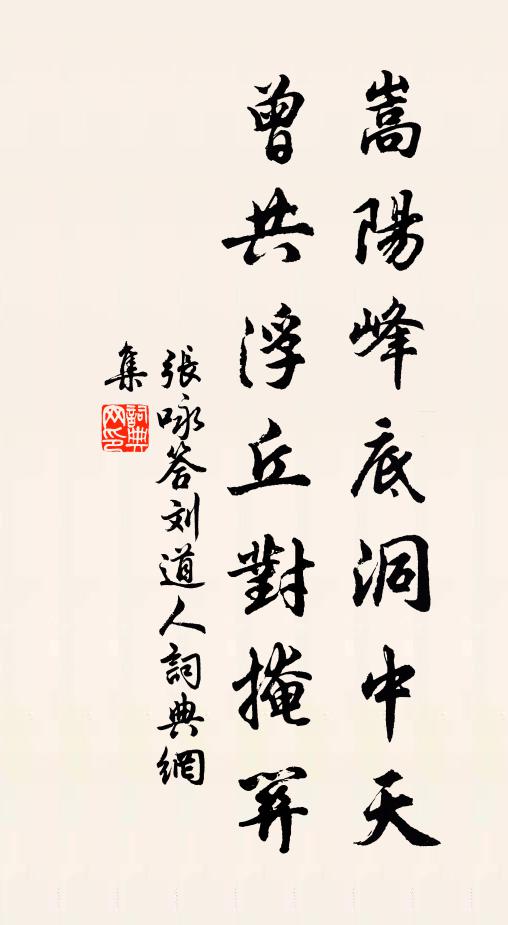 嵩陽峰底洞中天
曾共浮丘對掩關
張咏答刘道人詞典網
集
詞典网印